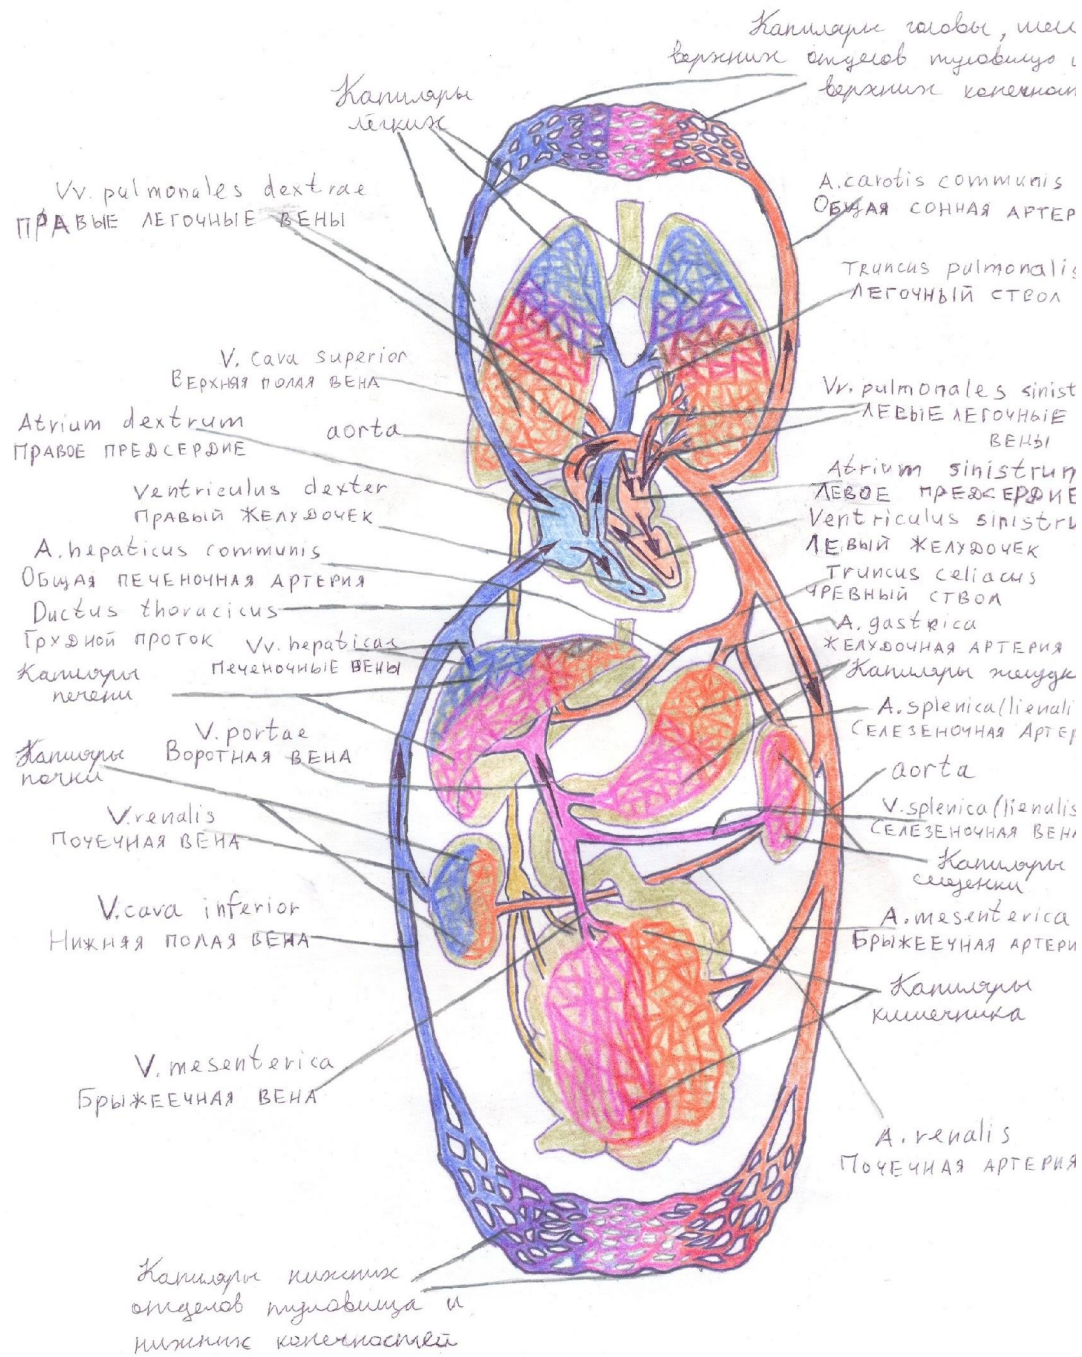 Капиляры головы, шеи
верхних отделов туловища и
верхних конечност
Капиляры
лёгких
Vv. pulmonales dextrae
ПРАВЫЕ ЛЕГОЧНЫЕ ВЕНЫ
A. carotis communis
ОБЩАЯ СОННАЯ АРТЕР
Truncus pulmonalis
ЛЕГОЧНЫЙ СТВОЛ
V. cava superior
ВЕРХНЯЯ ПОЛАЯ ВЕНА
Vv. pulmonales sinist
ЛЕВЫЕ ЛЕГОЧНЫЕ
ВЕНЫ
Atrium dextrum
ПРАВОЕ ПРЕДСЕРДИЕ
aorta
Atrium sinistrum
ЛЕВОЕ ПРЕДСЕРДИЕ
Ventriculus dexter
ПРАВЫЙ ЖЕЛУДОЧЕК
Ventriculus sinistru
ЛЕВЫЙ ЖЕЛУДОЧЕК
A. hepaticus communis
ОБЩАЯ ПЕЧЕНОЧНАЯ АРТЕРИЯ
Truncus celiacus
ЧРЕВНЫЙ СТВОЛ
Ductus thoracicus
ГРУДНОЙ ПРОТОК
A. gastrica
ЖЕЛУДОЧНАЯ АРТЕРИЯ
Vv. hepaticae
ПЕЧЕНОЧНЫЕ ВЕНЫ
Капиляры
печени
Капиляры желудк
A. splenica(lienali
СЕЛЕЗЕНОЧНАЯ АРТЕР
V. portae
ВОРОТНАЯ ВЕНА
Капиляры
почки
aorta
V. renalis
ПОЧЕЧНАЯ ВЕНА
V. splenica(lienalis
СЕЛЕЗЕНОЧНАЯ ВЕНА
Капиляры
V. cava inferior
НИЖНЯЯ ПОЛАЯ ВЕНА
A. mesenterica
БРЫЖЕЕЧНАЯ АРТЕРИ
Капиляры
кишечника
V. mesenterica
БРЫЖЕЕЧНАЯ ВЕНА
A. renalis
ПОЧЕЧНАЯ АРТЕРИЯ
Капиляры нижних
отделов туловища и
нижних конечностей